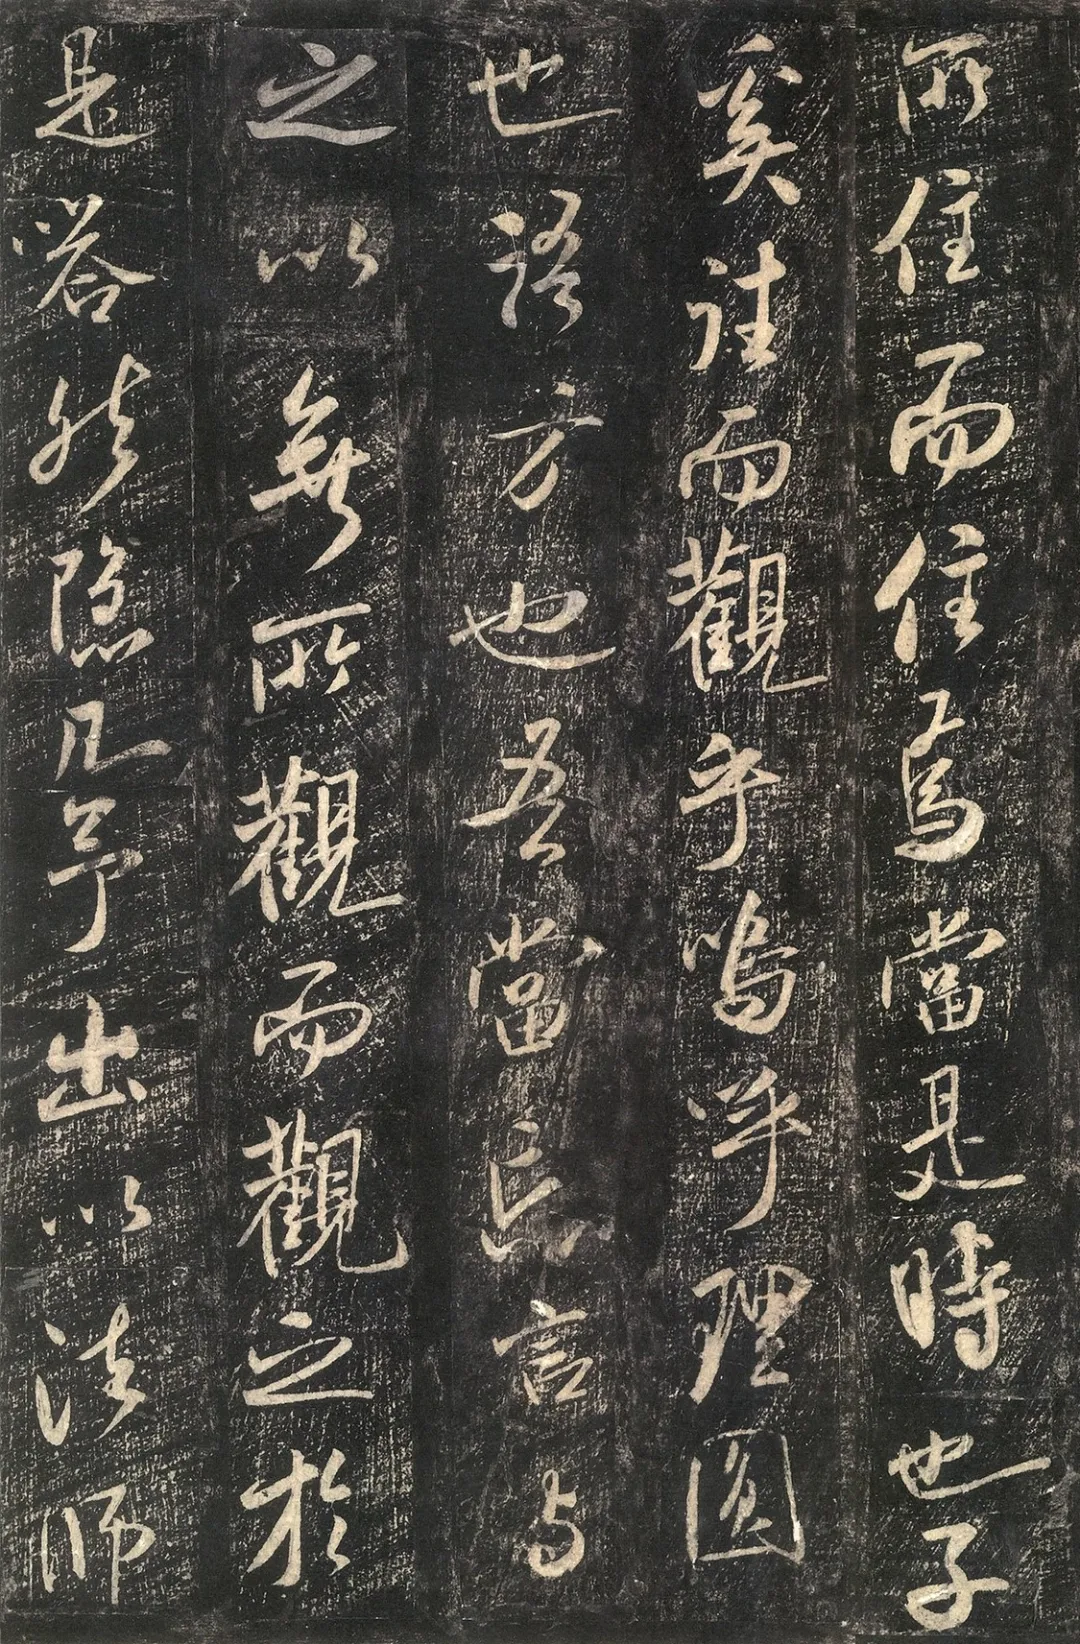 所住而住焉當是時也子
奚往而觀乎嗚呼理圓
也語方也吾當忘言與
之以無所觀而觀之於
是嗒然隱几予出以法師